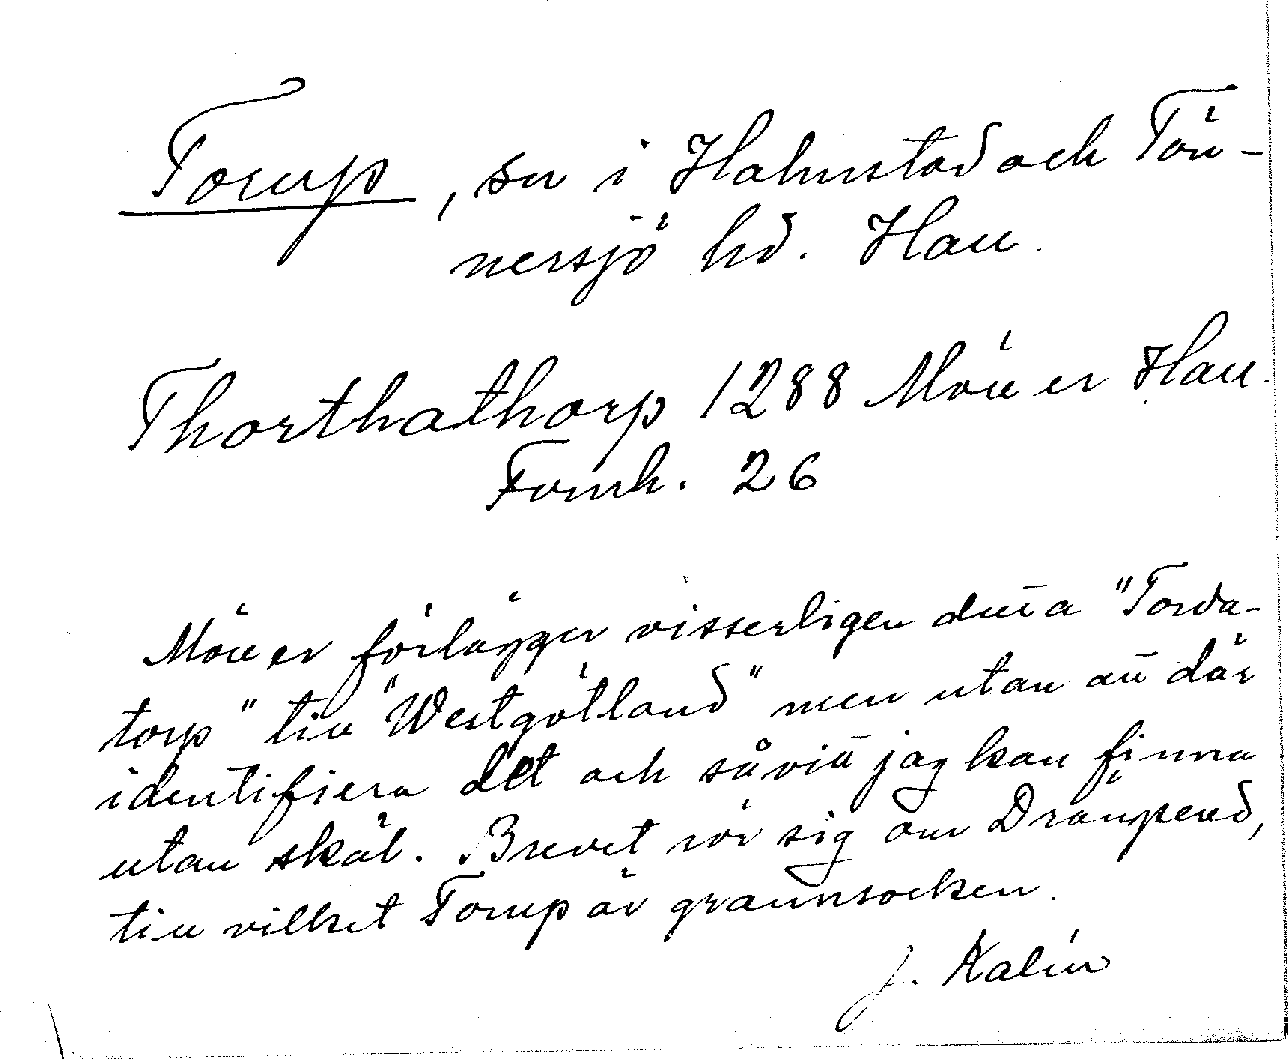 Torup, sn i Halmstad och Tön-
nersjö hd. Hall.
Thorthathorp 1288 Möller Hall.
Formh. 26
Möller förlägger visserligen detta "Torda-
torp" till "Westgötland" men utan att där
identifiera det och såvitt jag kan finna
utan skäl. Brevet rör sig om Drängsered,
till vilket Torup är grannsocken.
J. Kalén